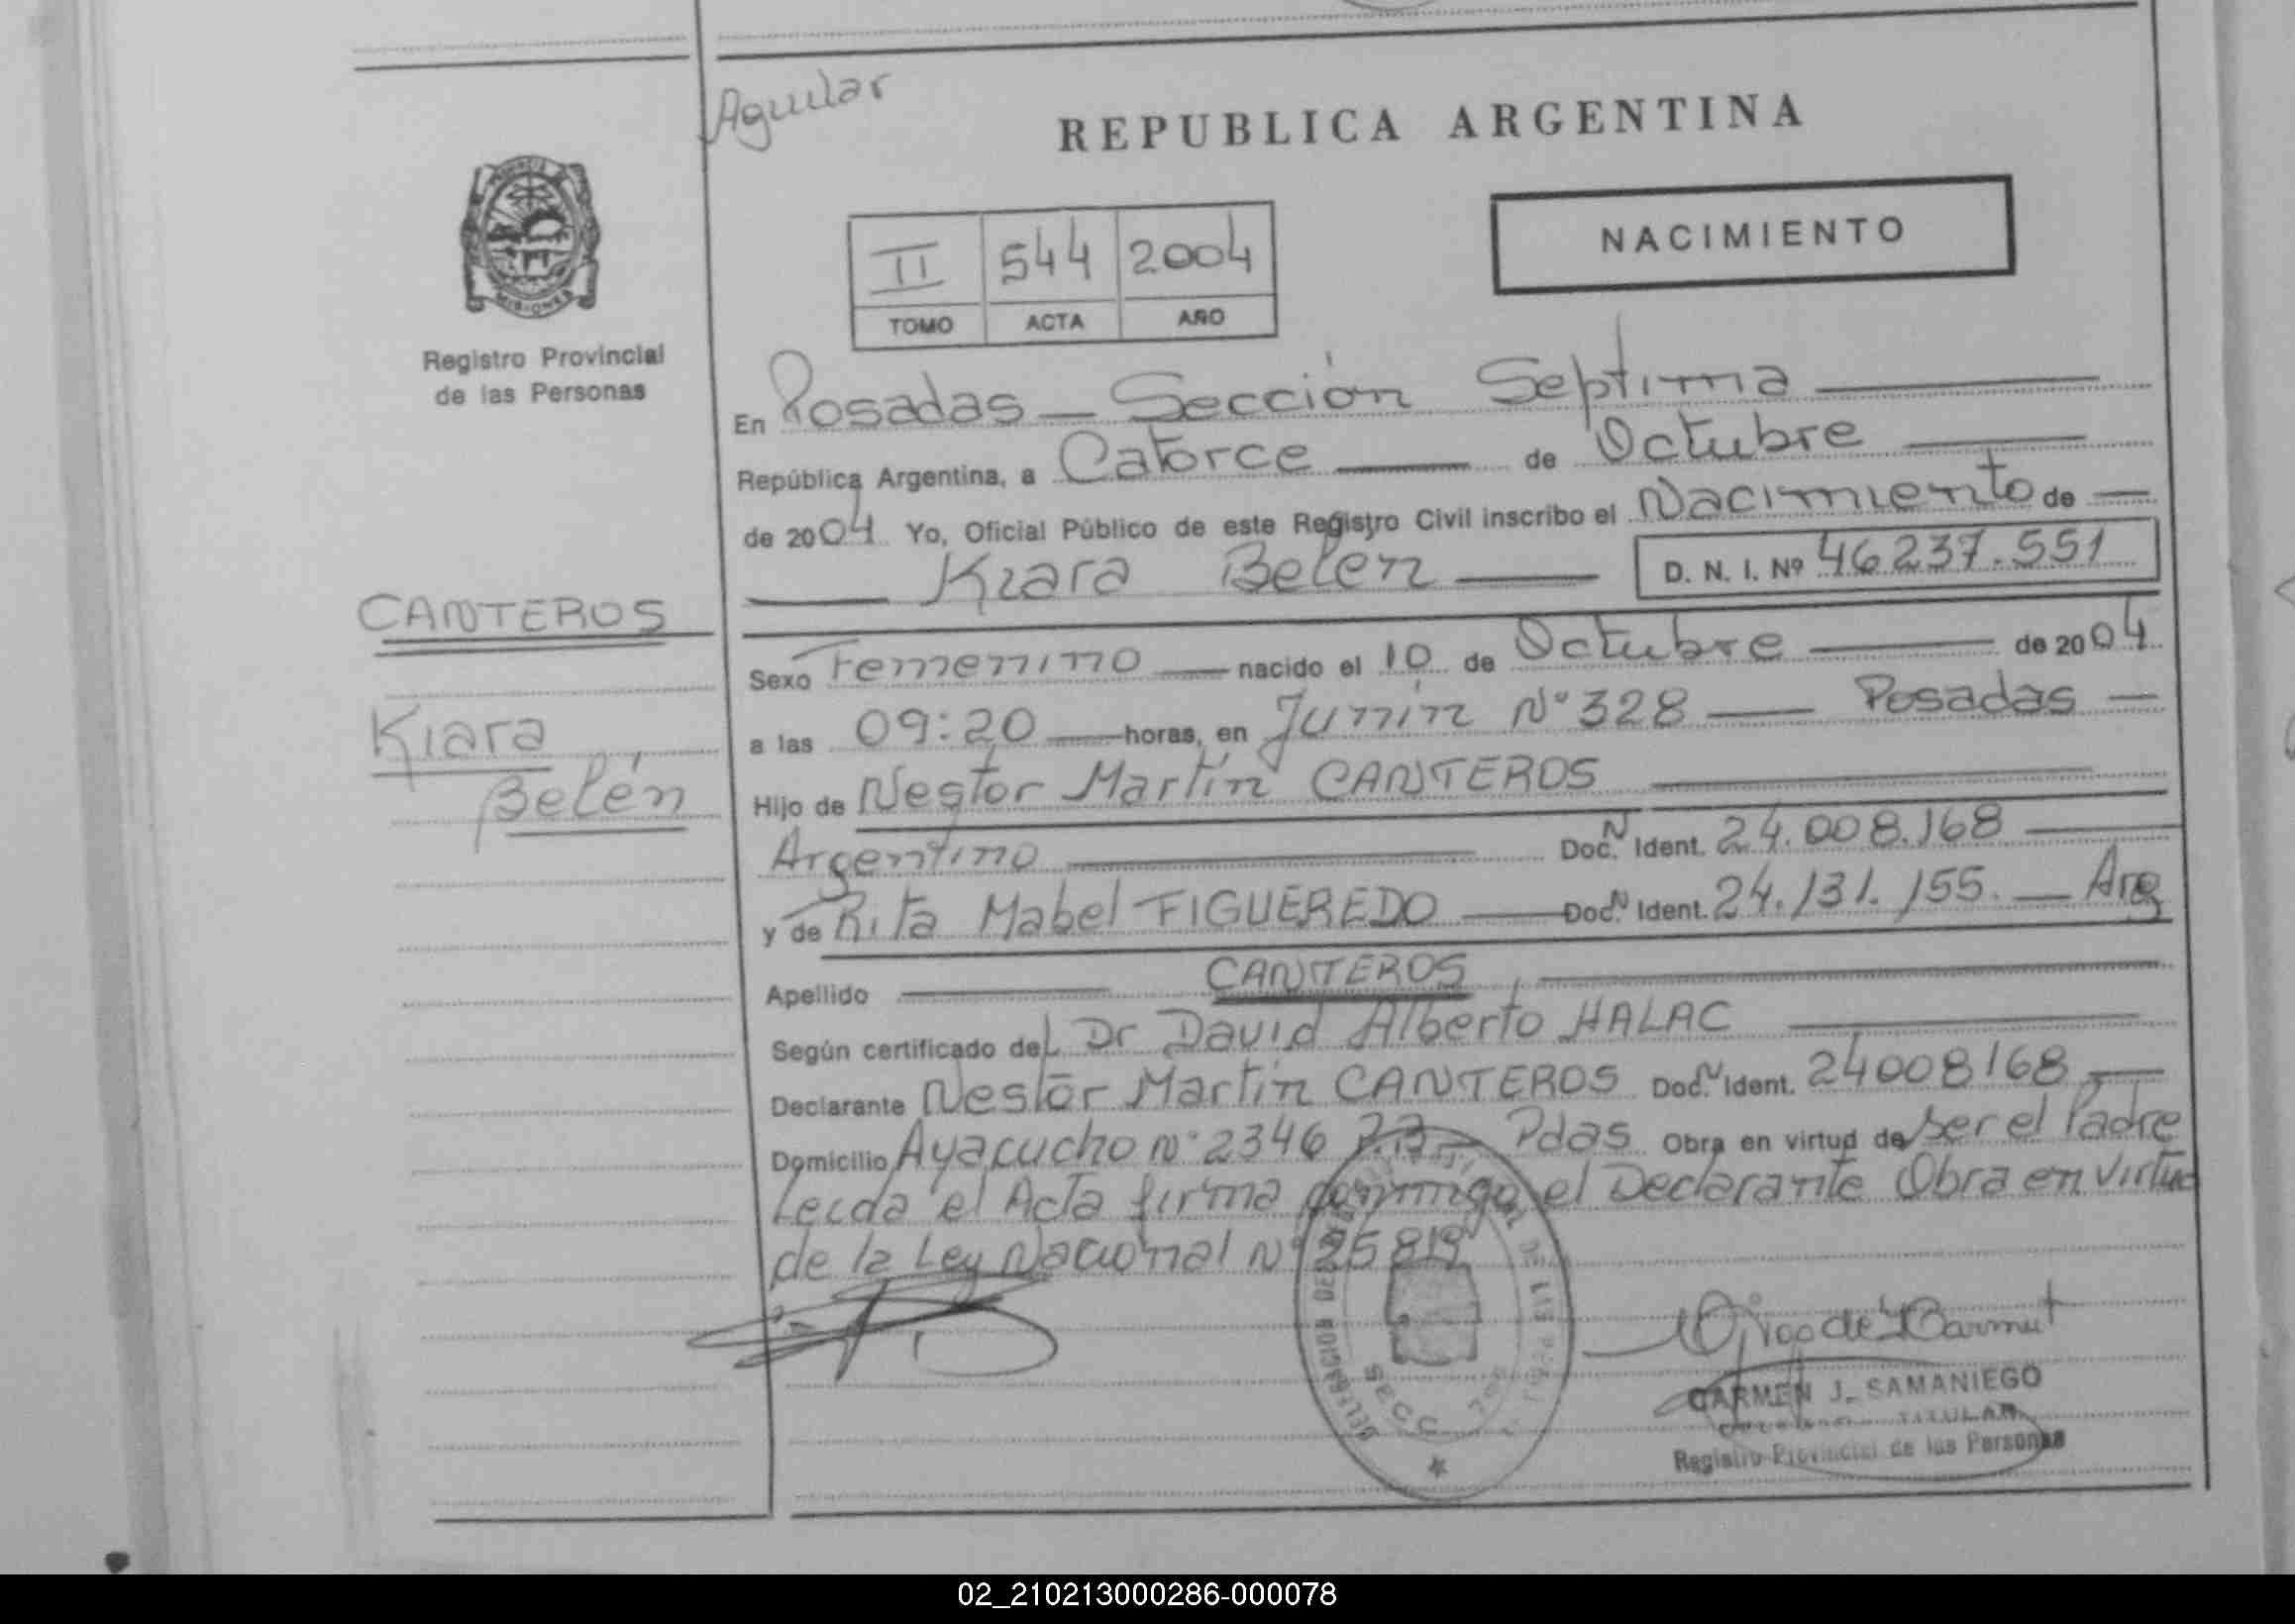 Aguilar
REPUBLICA ARGENTINA
NACIMIENTO
II 544 2004
TOMO ACTA AÑO
MISIONES
Registro Provincial
de las Personas
En Posadas — Sección Septima
República Argentina, a Catorce de Octubre
de 2004 Yo, Oficial Público de este Registro Civil inscribo el Nacimiento de
Kiara Belén D. N. I. Nº 46237.551
CANTEROS
Kiara
Belén
Sexo Femenino nacido el 10 de Octubre de 2004
a las 09:20 horas, en Junín Nº 328 — Posadas
Hijo de Nestor Martín CANTEROS
Argentino Doc. N Ident. 24.008.168
y de Rita Mabel FIGUEREDO Doc. N Ident. 24.131.155. — Arg
Apellido CANTEROS
Según certificado del Dr David Alberto HALAC
Declarante Nestor Martín CANTEROS Doc. N Ident. 24008168
Domicilio Ayacucho Nº 2346 Pdas Obra en virtud de ser el Padre
Leída el Acta firma conmigo el Declarante Obra en virtud
de la Ley Nacional Nº 25819
CARMEN J. SAMANIEGO
TITULAR
Registro Provincial de las Personas
02_210213000286-000078